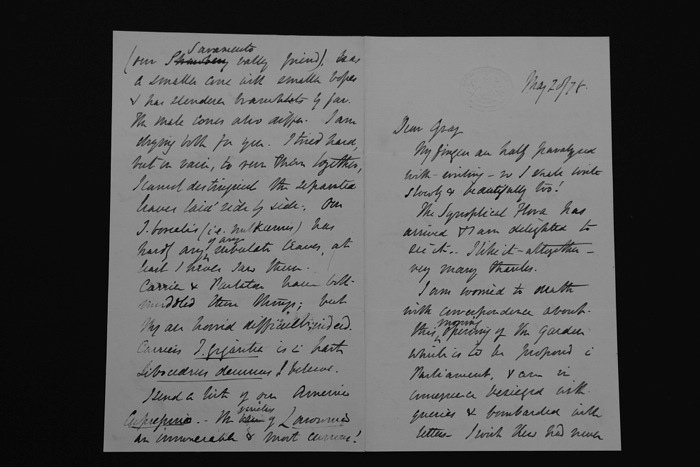 (our Strawberry Sacramento vally friend), has
a smaller cone with smaller bracts
& has slenderer branchlets by far.
The male cones also differ. I am
drying both for you. I tried hard,
but in vain, to run them together,
I cannot distinguish the separated
leaves laid side by side. Our
T. borealis (i.e. ) has
hardly any if any leaves, at
least I never saw them.
Carriere & Parlatore have both
muddled these things; but
they are horrid difficult indeed.
Carriere's T. gigantea is in part
Libocedrus decurrens I believe.
I send a list of our America
Cupressus. The varieties of Lawsoniana
are innumerable & most curious!
May 20/78.
Dear Gray
My fingers are half paralyzed
with writing — so I shall write
slowly & beautifully too!
The Synoptical Flora has
arrived & I am delighted to
see it. I like it altogether —
very many thanks.
I am worried to death
with correspondence about
this morning opening of the Garden
which is to be proposed in
Parliament, & am in
consequence besieged with
queries & bombarded with
letters. I wish there had never